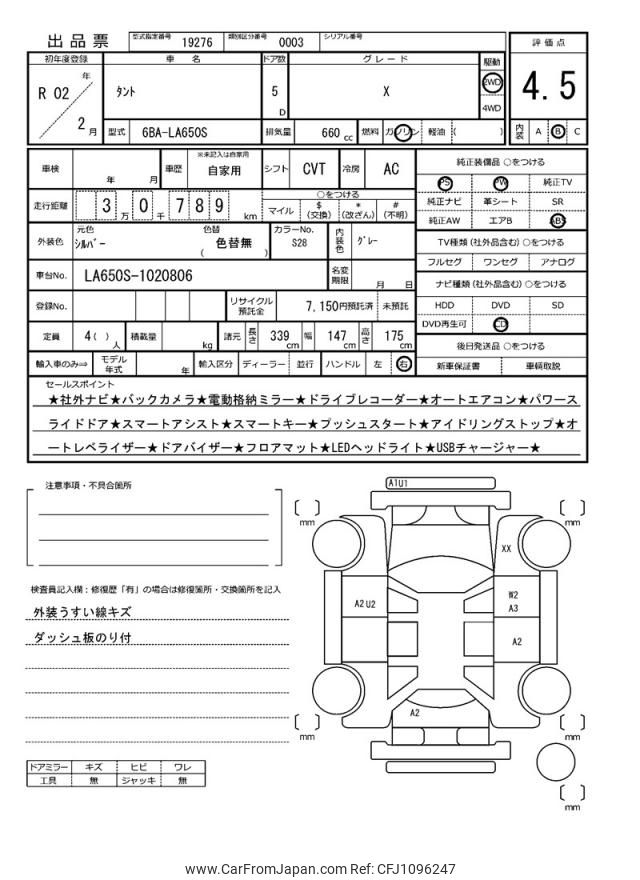 出品票 型式指定番号 19276 類別区分番号 0003 シリアル番号
評価点
4.5
内装 A B C
初年度登録 車名 ドア数 グレード 駆動
R 02 年 2 月 タント 5 D X 2WD 4WD
型式 6BA-LA650S 排気量 660 cc 燃料 ガソリン 軽油 ( )
車検 年 月 車歴 ※未記入は自家用 自家用 シフト CVT 冷房 AC
走行距離 3 万 0 千 7 8 9 km
○をつける
マイル $ (交換) * (改ざん) # (不明)
外装色 元色 シルバー 色替 色替無 ( ) カラーNo. S28 内装色 グレー
車台No. LA650S-1020806 名変期限 月 日
登録No. リサイクル預託金 7,150円預託済 未預託
定員 4( ) 人 積載量 kg 諸元 長さ 339 cm 幅 147 cm 高さ 175 cm
輸入車のみ⇒ モデル年式 年 輸入区分 ディーラー 並行 ハンドル 左 右
純正装備品 ○をつける
PS PW 純正TV
純正ナビ 革シート SR
純正AW エアB ABS
TV種類 (社外品含む) ○をつける
フルセグ ワンセグ アナログ
ナビ種類 (社外品含む) ○をつける
HDD DVD SD
DVD再生可 CD
後日発送品 ○をつける
新車保証書 車輌取説
セールスポイント
★社外ナビ★バックカメラ★電動格納ミラー★ドライブレコーダー★オートエアコン★パワース
ライドドア★スマートアシスト★スマートキー★プッシュスタート★アイドリングストップ★オ
ートレベライザー★ドアバイザー★フロアマット★LEDヘッドライト★USBチャージャー★
注意事項・不具合箇所
検査員記入欄：修復歴「有」の場合は修復箇所・交換箇所を記入
外装うすい線キズ
ダッシュ板のり付
ドアミラー キズ ヒビ ワレ
工具 無 ジャッキ 無
A1U1
mm
mm
XX
A2U2
W2
A3
A2
A2
mm
mm
mm
www.CarFromJapan.com Ref: CFJ1096247